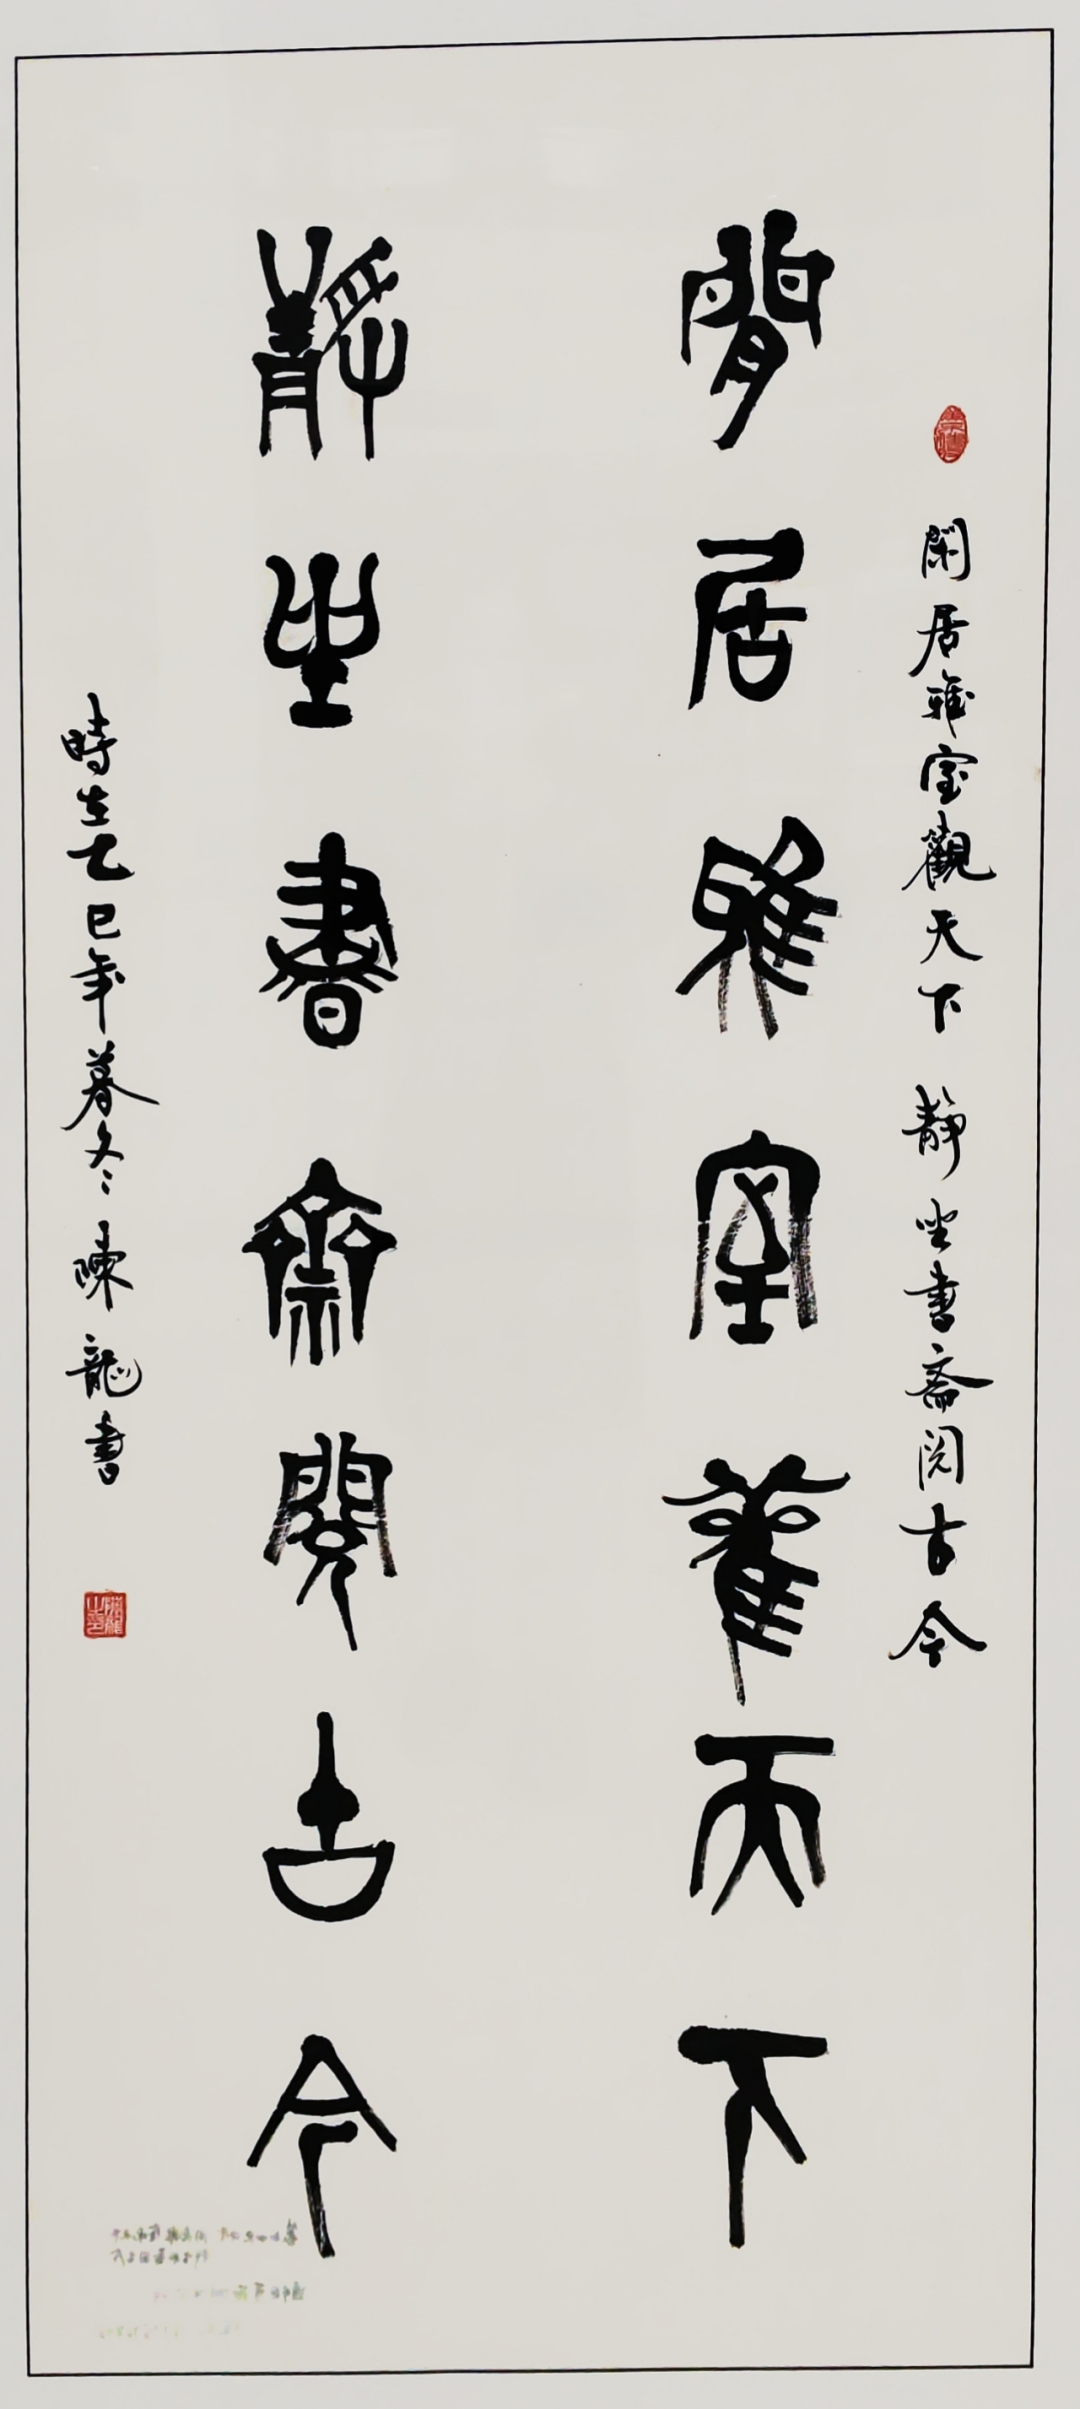 閒居雅室雚天下
靜坐書齋閱古今
閑居雅室觀天下 靜坐書斋阅古今
時在乙巳年暮冬陳龍書